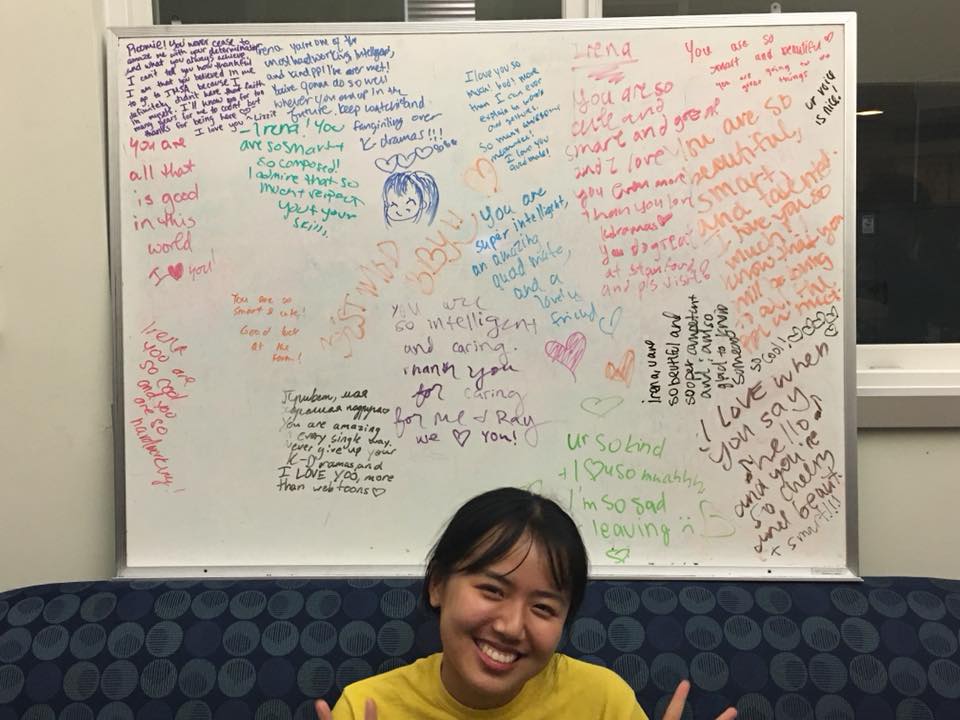 Roomie! You never cease to
amaze me with your determination
and what you always achieve.
I can't tell you how thankful
I am that you believed in me
to go to IMSA, because I
definitely didn't have that faith
in myself. I'll know you for too
many years for me to count but
thanks for being here
I love you ~Lizzie
Irena you're one of the
most hardworking, intelligent,
and kind ppl I've ever met!
You're gonna do so well
wherever you end up in the
future, keep watching and
fangirling over
K-dramas!!!
-Irena! You
are so smart
so composed!
I admire that so
much + respect
your
skill.
You are
all that
is good
in this
world
I ♥ you!
I love you so
much, boo! more
than I can ever
explain in words
or
So many awesome
memories!
I love you
quad mate!
You are
super intelligent,
an amazing
quad mate,
and a
lovely
friend ♡
Irena
You are so
cute and
smart and great
and I love
you even more
than you love
kdramas
You do great
at stanford
and pls visit!
You are so
smart and beautiful ♡
you are going to do
great things
ur voice
is nice!
You are so
beautiful,
smart
and talented.
I love you so
much! I
know that you
will do
You are so
smart & cute!
Good luck
at the
JUST
BBYU
you are
so intelligent
and caring.
Thank you
for caring
for me + Ray
we ♡ you!
Irena
you are
so cool
and you
are so
hardworking!
Привет, моя
хорошая подруга
You are amazing
every single way.
never give up your
K-Dramas and
I LOVE YOU, more
than webtoons ♡
Irena, u are
so beautiful and
sooper competent
and i am also
glad to know
someone
so cool!
ur so kind
+ I ♡ u so muahhh,
I'm so sad
leaving
I LOVE when
you say
hello
and you're
so cheery
and beaut.
+ smart!!!